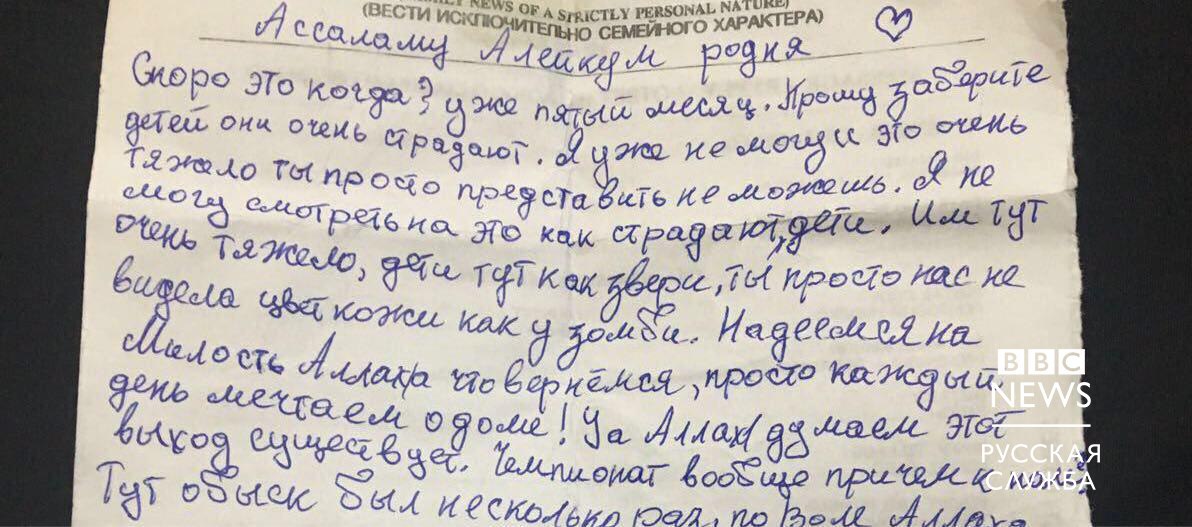 NEWS OF A STRICTLY PERSONAL NATURE)
(ВЕСТИ ИСКЛЮЧИТЕЛЬНО СЕМЕЙНОГО ХАРАКТЕРА)
Ассаламу Алейкум родня
Скоро это когда? уже пятый месяц. Прошу заберите
детей они очень страдают. Я уже не могу и это очень
тяжело ты просто представить не можешь. Я не
могу смотреть на это как страдают, дети. Им тут
очень тяжело, дети тут как звери, ты просто нас не
видела цвет кожи как у зомби. Надеемся на
Милость Аллаха что вернёмся, просто каждый
день мечтаем о доме! Уа Аллахl думаем этот
выход существует. Чемпионат вообще причем к
Тут обыск был несколько раз, по воле Аллаха
BBC
NEWS
РУССКАЯ
СЛУЖБА